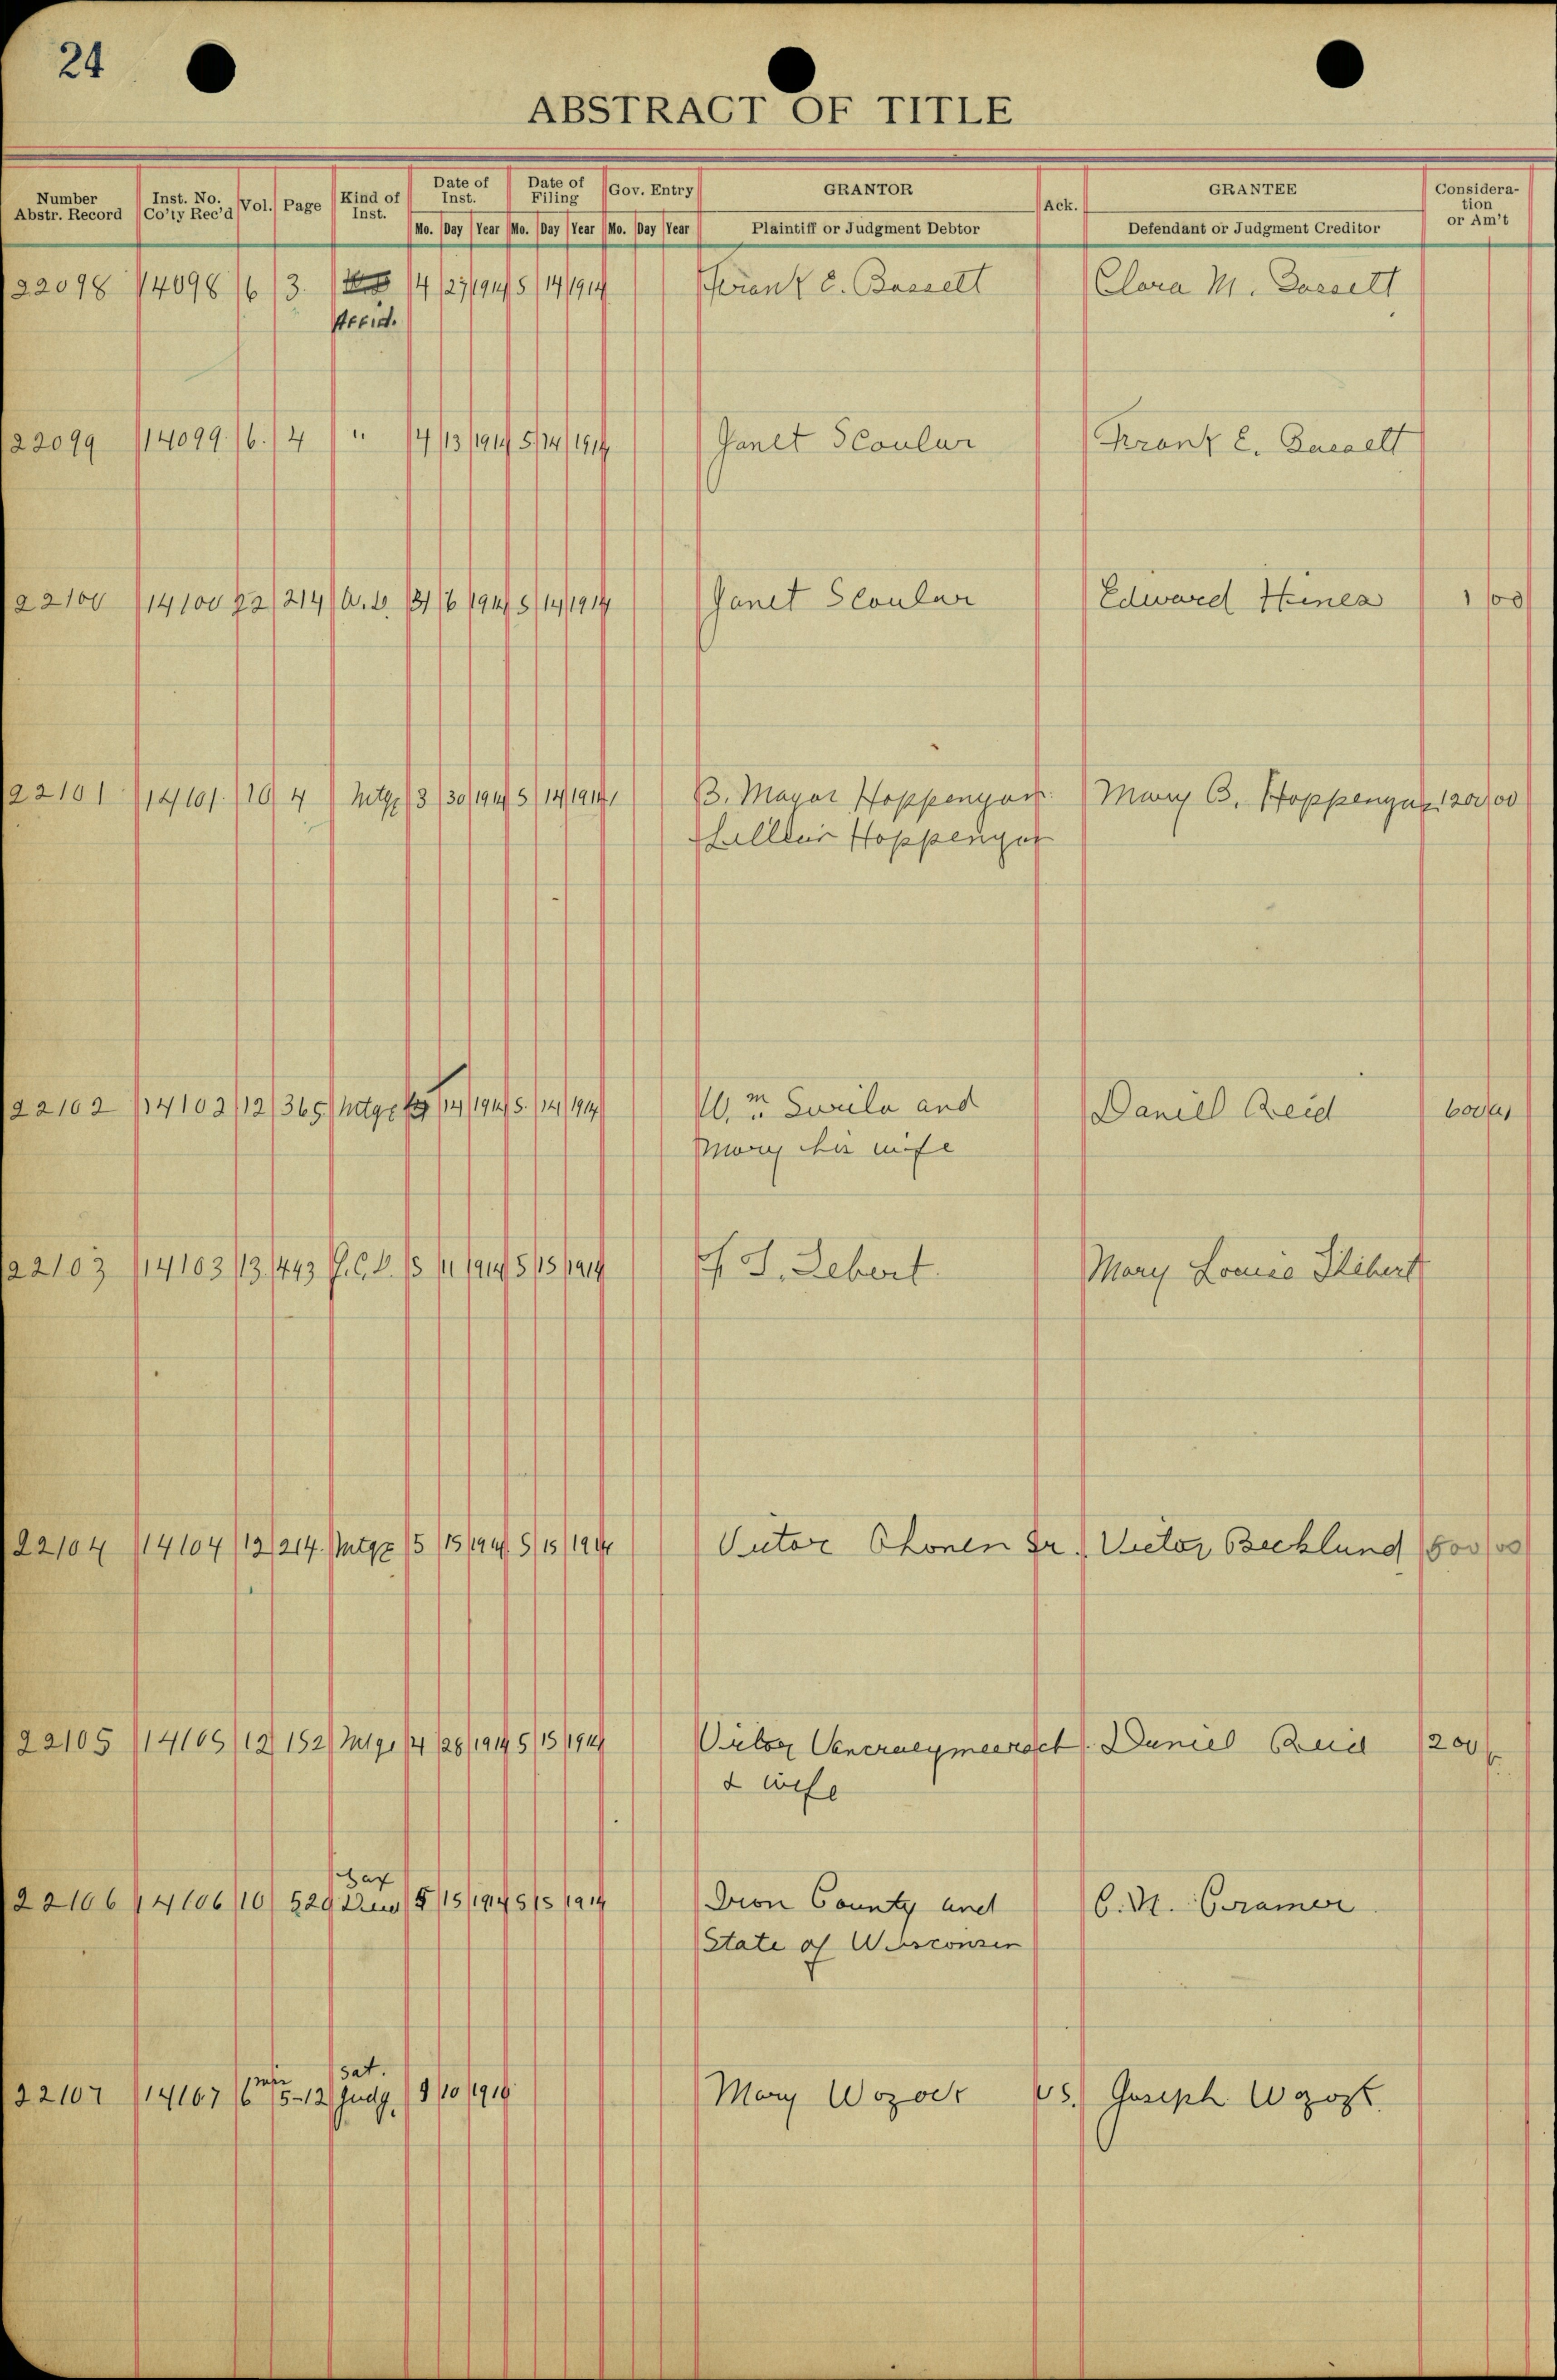 24
ABSTRACT OF TITLE
Number Abstr. Record Inst. No. Co'ty Rec'd Vol. Page Kind of Inst. Date of Inst. Date of Filing Gov. Entry GRANTOR Ack. GRANTEE Consideration or Am't
Mo. Day Year Mo. Day Year Mo. Day Year Plaintiff or Judgment Debtor Defendant or Judgment Creditor
22098 14098 6 3. 4 27 1914 5 14 1914 Frank E. Bassett Clara M. Bassett
Affid.
22099 14099 6. 4 " 4 13 1914 5 14 1914 Janet Scoular Frank E. Bassett
22100 14100 22 214 W.D. 3 6 1914 5 14 1914 Janet Scoular Edward Hines 1 00
22101 14101. 10 4 Mtge 3 30 1914 5 14 1914 B. Mayor Hoppenyan Mary B. Hoppenyan 1200 00
Hoppenyan
22102 14102 12 365 Mtge 14 1914 5. 14 1914 Wm Swila and Daniel Reid 600
Mary his wife
22103 14103 13 443 5 11 1914 5 15 1914 Mary Louise
22104 14104 12 214. Mtge 5 15 1914. 5 15 1914 Victor Ohonen Sr. Victor Becklund 500 00
22105 14105 12 152 Mtge 4 28 1914 5 15 1914 Victor Daniel Reid 200
& wife
Tax
22106 14106 10 529 Deed 5 15 1914 5 15 1914 Iron County and C. N. Cramer
State of Wisconsin
min sat.
22107 14107 6 5-12 Judg. 10 1910 Mary Wozock vs. Joseph